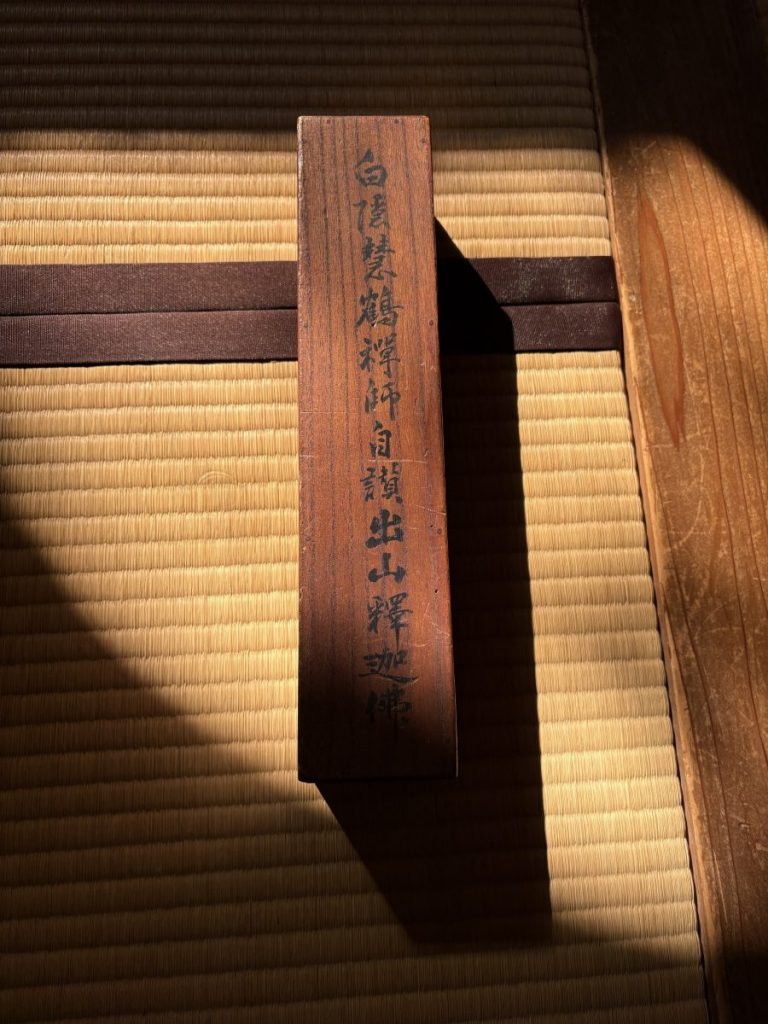 白隠慧鶴禪師自讃出山釋迦佛